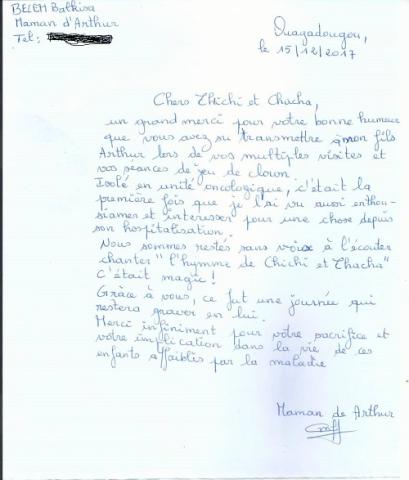 BELEM Balkisa
Maman d'Arthur
Tel:
Ouagadougou,
le 15/12/2017
Chers Chichi et Chacha,
un grand merci pour votre bonne humeur
que vous avez su transmettre à mon fils
Arthur lors de vos multiples visites et
vos séances de jeu de clown.
Isolé en unité oncologique, c'était la
première fois que je l'ai vu aussi enthou-
siames et interesser pour une chose depuis
son hospitalisation.
Nous sommes restés sans voix à l'écouter
chanter "l'hymne de Chichi et Chacha"
C'était magic!
Grâce à vous, ce fut une journée qui
restera graver en lui.
Merci infiniment pour votre sacrifice et
votre implication dans la vie de ces
enfants affaiblis par la maladie
Maman de Arthur